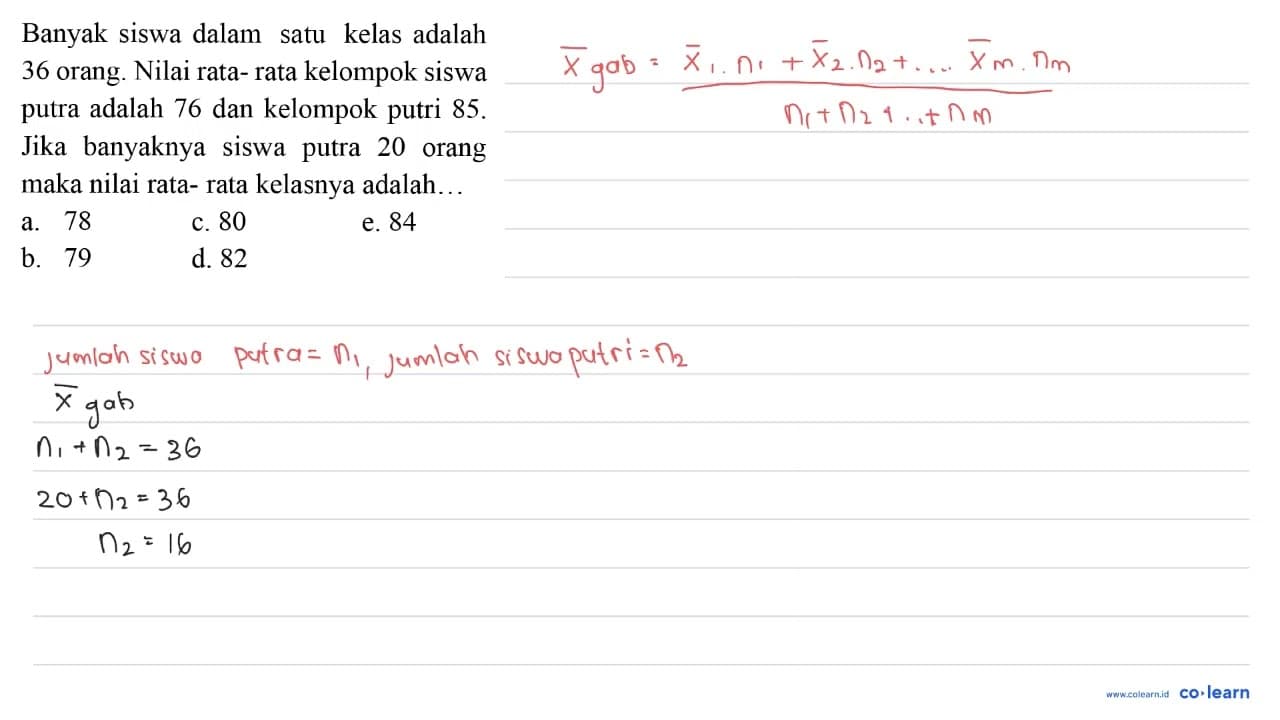 Banyak siswa dalam satu kelas adalah
36 orang. Nilai rata- rata kelompok siswa
putra adalah 76 dan kelompok putri 85.
Jika banyaknya siswa putra 20 orang
maka nilai rata- rata kelasnya adalah...
a. 78 c. 80 e. 84
b. 79 d. 82
x̄ gab = x̄1 . n1 + x̄2 . n2 + .... x̄m . nm
n1 + n2 + ..+ nm
jumlah siswa putra = n1, jumlah siswa putri = n2
x̄ gab
n1 + n2 = 36
20 + n2 = 36
n2 = 16
www.colearn.id co•learn